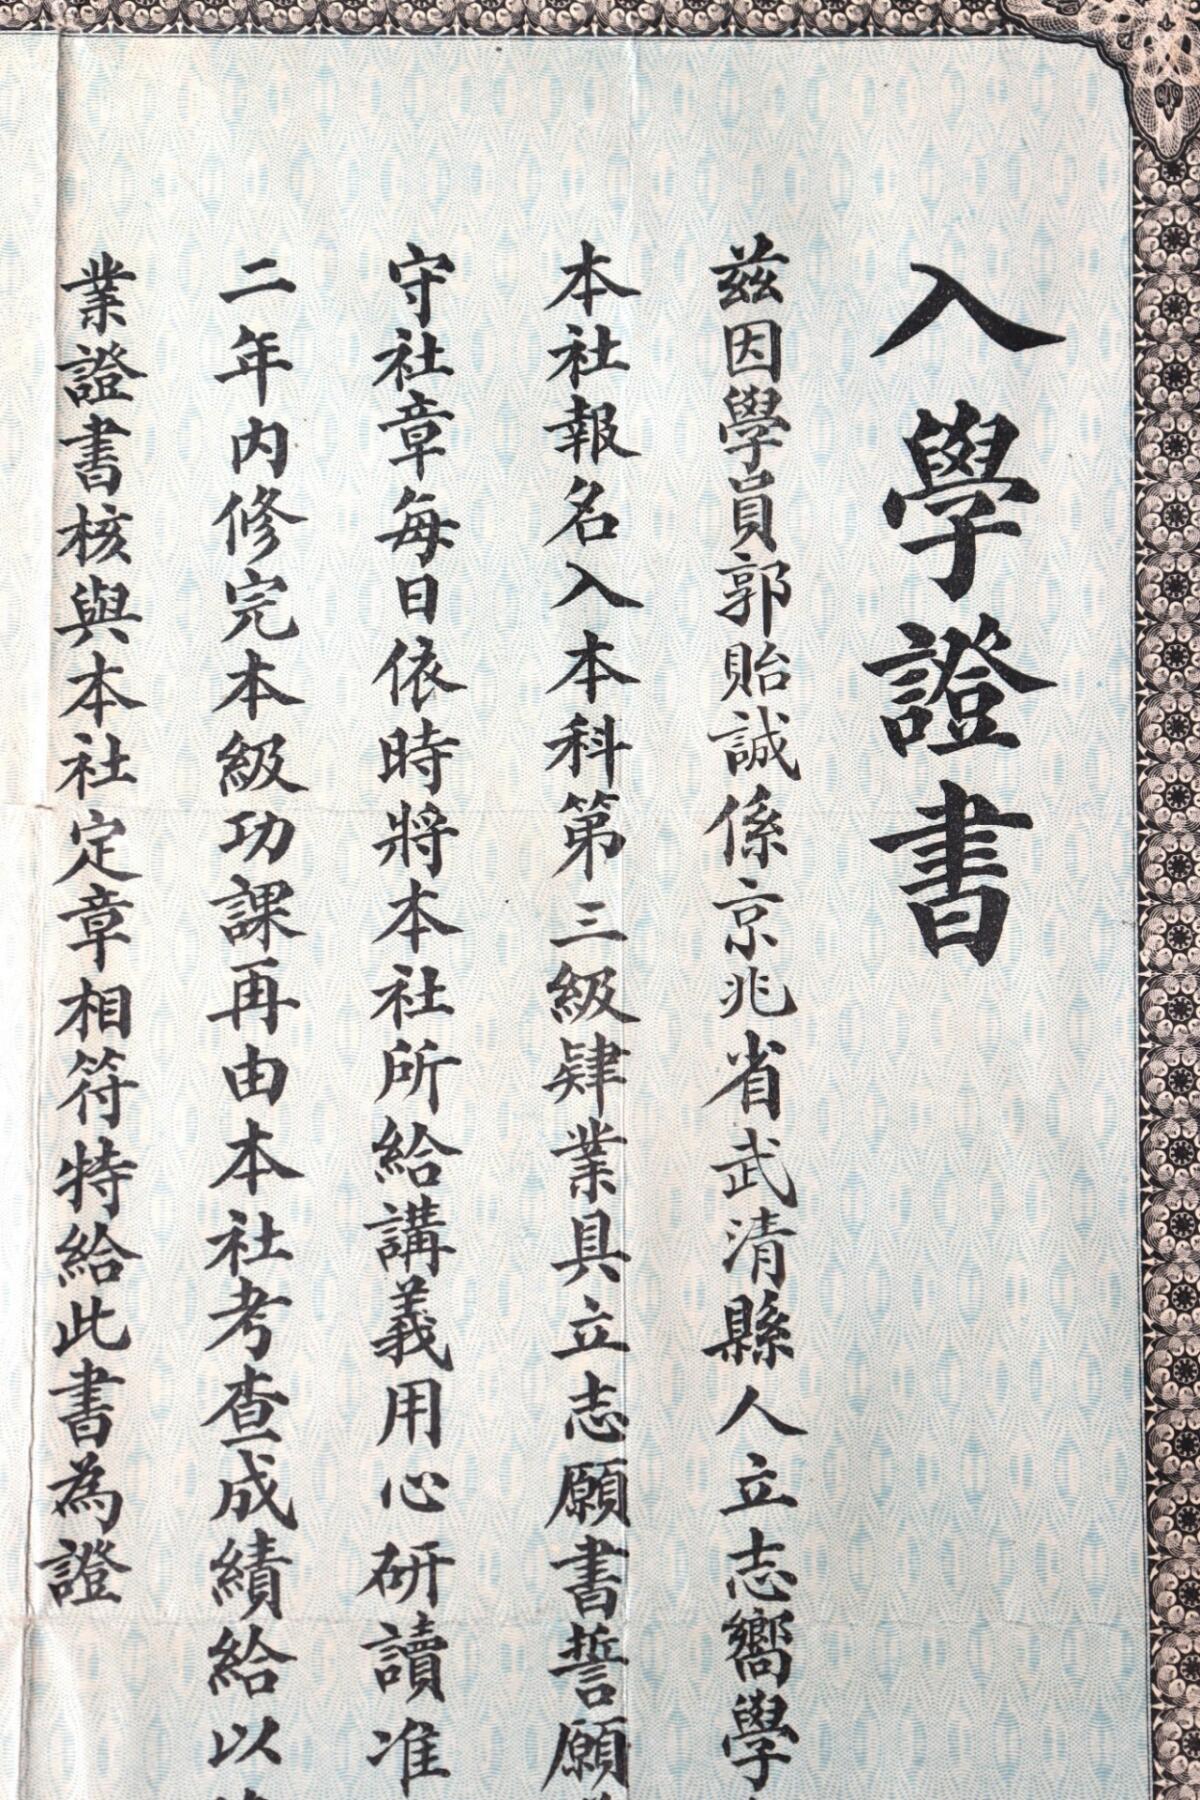 入學證書
茲因學員郭貽誠係京兆省武清縣人立志嚮學
本社報名入本科第三級肄業具立志願書誓願
守社章每日依時將本社所給講義用心研讀准
二年内修完本級功課再由本社考查成績給以
業證書核與本社定章相符特給此書為證